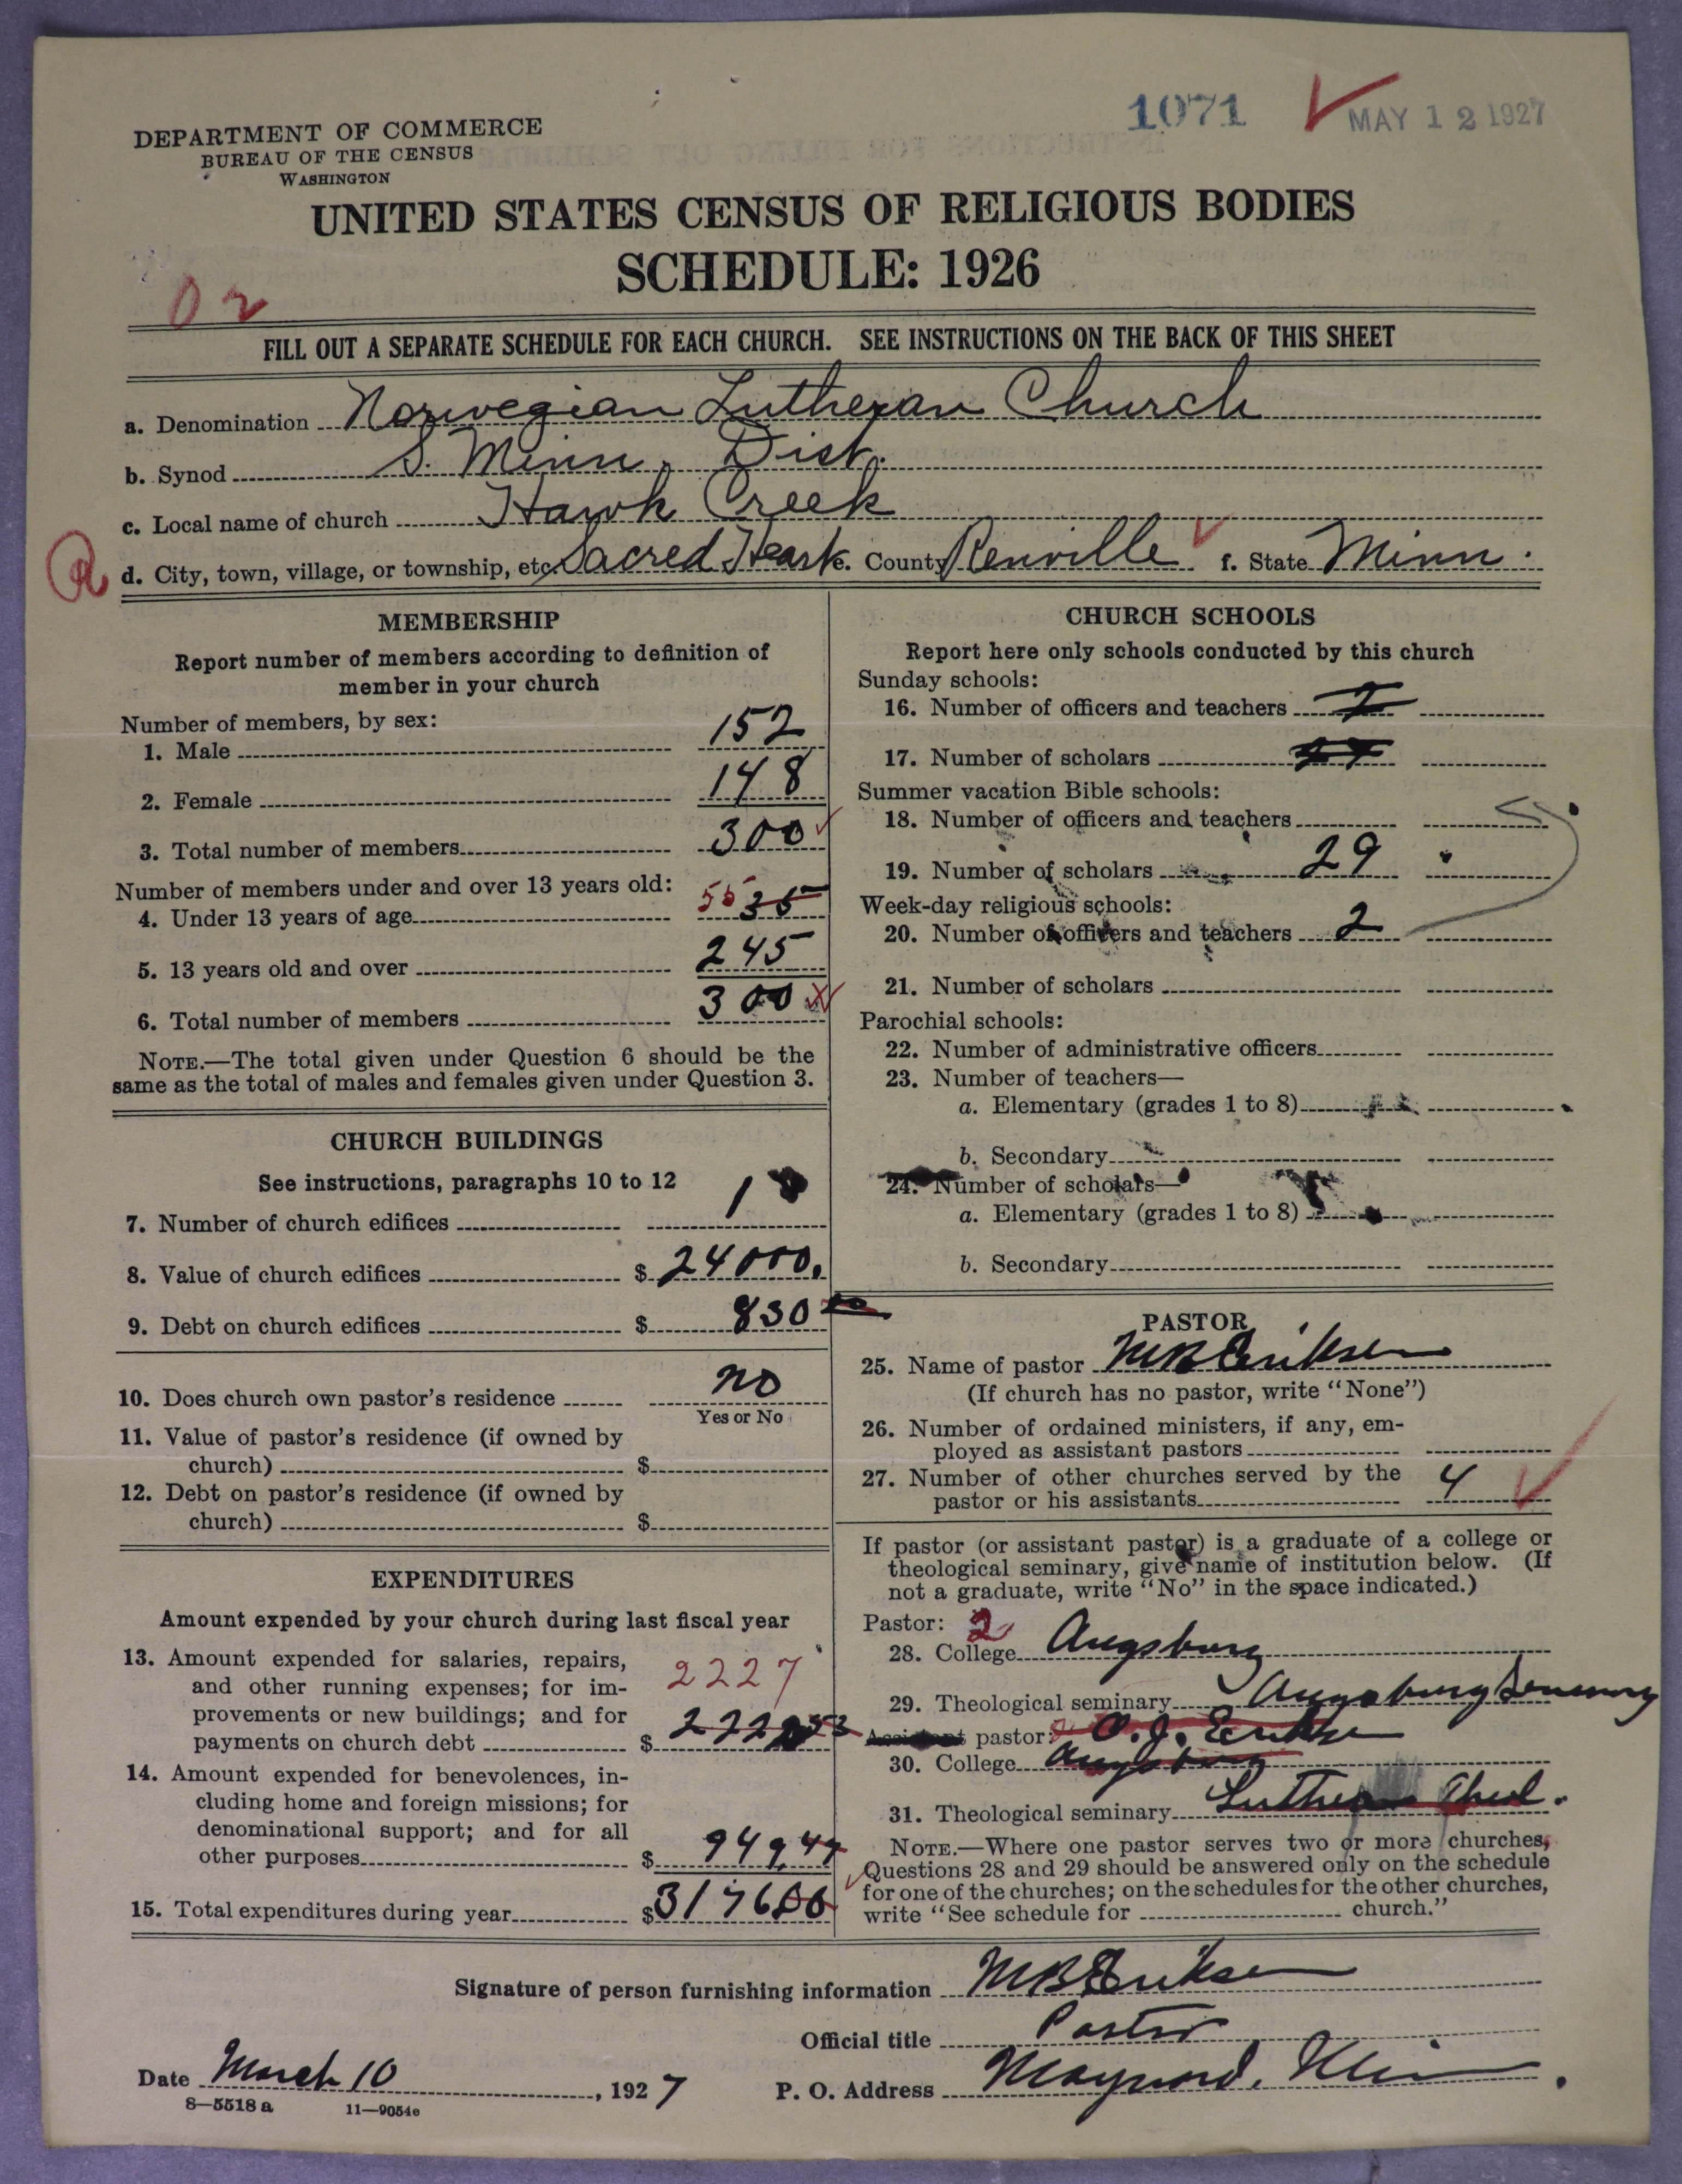 1071 MAY 12 1927
DEPARTMENT OF COMMERCE
BUREAU OF THE CENSUS
WASHINGTON
UNITED STATES CENSUS OF RELIGIOUS BODIES
SCHEDULE: 1926
02
FILL OUT A SEPARATE SCHEDULE FOR EACH CHURCH. SEE INSTRUCTIONS ON THE BACK OF THIS SHEET
a. Denomination Norwegian Lutheran Church
b. Synod S. Minn. Dist.
c. Local name of church Hawk Creek
d. City, town, village, or township, etc. Sacred Heart e. County Renville f. State Minn.
MEMBERSHIP
Report number of members according to definition of
member in your church
Number of members, by sex:
1. Male 152
2. Female 148
3. Total number of members 300
Number of members under and over 13 years old:
4. Under 13 years of age 55 35
5. 13 years old and over 245
6. Total number of members 300
NOTE.—The total given under Question 6 should be the
same as the total of males and females given under Question 3.
CHURCH BUILDINGS
See instructions, paragraphs 10 to 12
7. Number of church edifices 1
8. Value of church edifices $ 24000.
9. Debt on church edifices $ 830
10. Does church own pastor's residence no
Yes or No
11. Value of pastor's residence (if owned by
church) $
12. Debt on pastor's residence (if owned by
church) $
EXPENDITURES
Amount expended by your church during last fiscal year
13. Amount expended for salaries, repairs,
and other running expenses; for im-
provements or new buildings; and for
payments on church debt $
2227
14. Amount expended for benevolences, in-
cluding home and foreign missions; for
denominational support; and for all
other purposes $ 949.47
15. Total expenditures during year $ 3176
CHURCH SCHOOLS
Report here only schools conducted by this church
Sunday schools:
16. Number of officers and teachers
17. Number of scholars
Summer vacation Bible schools:
18. Number of officers and teachers
19. Number of scholars 29
Week-day religious schools:
20. Number of officers and teachers 2
21. Number of scholars
Parochial schools:
22. Number of administrative officers
23. Number of teachers—
a. Elementary (grades 1 to 8)
b. Secondary
24. Number of scholars—
a. Elementary (grades 1 to 8)
b. Secondary
PASTOR
25. Name of pastor M B Eriksen
(If church has no pastor, write "None")
26. Number of ordained ministers, if any, em-
ployed as assistant pastors
27. Number of other churches served by the
pastor or his assistants 4
If pastor (or assistant pastor) is a graduate of a college or
theological seminary, give name of institution below. (If
not a graduate, write "No" in the space indicated.)
Pastor: 2
28. College Augsburg
29. Theological seminary Augsburg Seminary
Assistant pastor: O. J. Eriksen
30. College Augsburg
31. Theological seminary Lutheran Theol.
NOTE.—Where one pastor serves two or more churches,
Questions 28 and 29 should be answered only on the schedule
for one of the churches; on the schedules for the other churches,
write "See schedule for church."
Signature of person furnishing information M B Eriksen
Official title Pastor
Date March 10, 1927 P. O. Address Maynard, Minn
8—5518 a 11—9054e